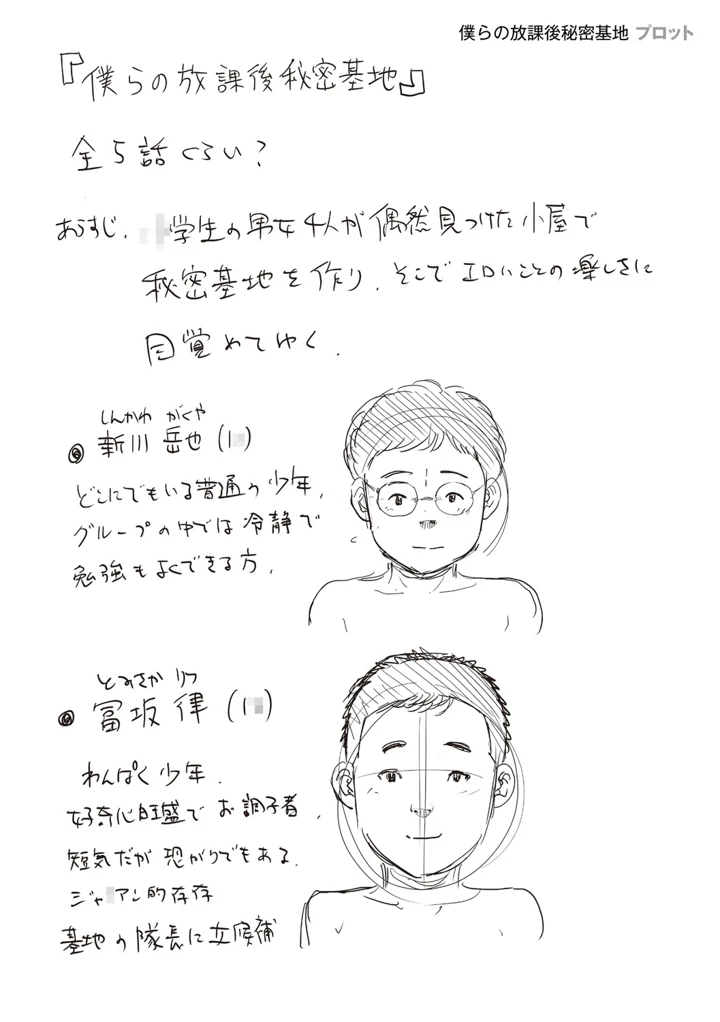 僕らの放課後秘密基地 プロット
『僕らの放課後秘密基地』
全5話くらい?
あらすじ. 学生の男女4人が偶然見つけた小屋で
秘密基地を作り、そこでエロいことの楽しさに
目覚めてゆく.
しんかわ がくや
◎ 新川 岳也 (1 )
どこにでもいる普通の少年.
グループの中では冷静で
勉強もよくできる方.
とみさか りつ
◎ 冨坂 律 (1 )
わんぱく少年.
好奇心旺盛でお調子者.
短気だが恐がりでもある.
ジャ アン的存在
基地の隊長に立候補